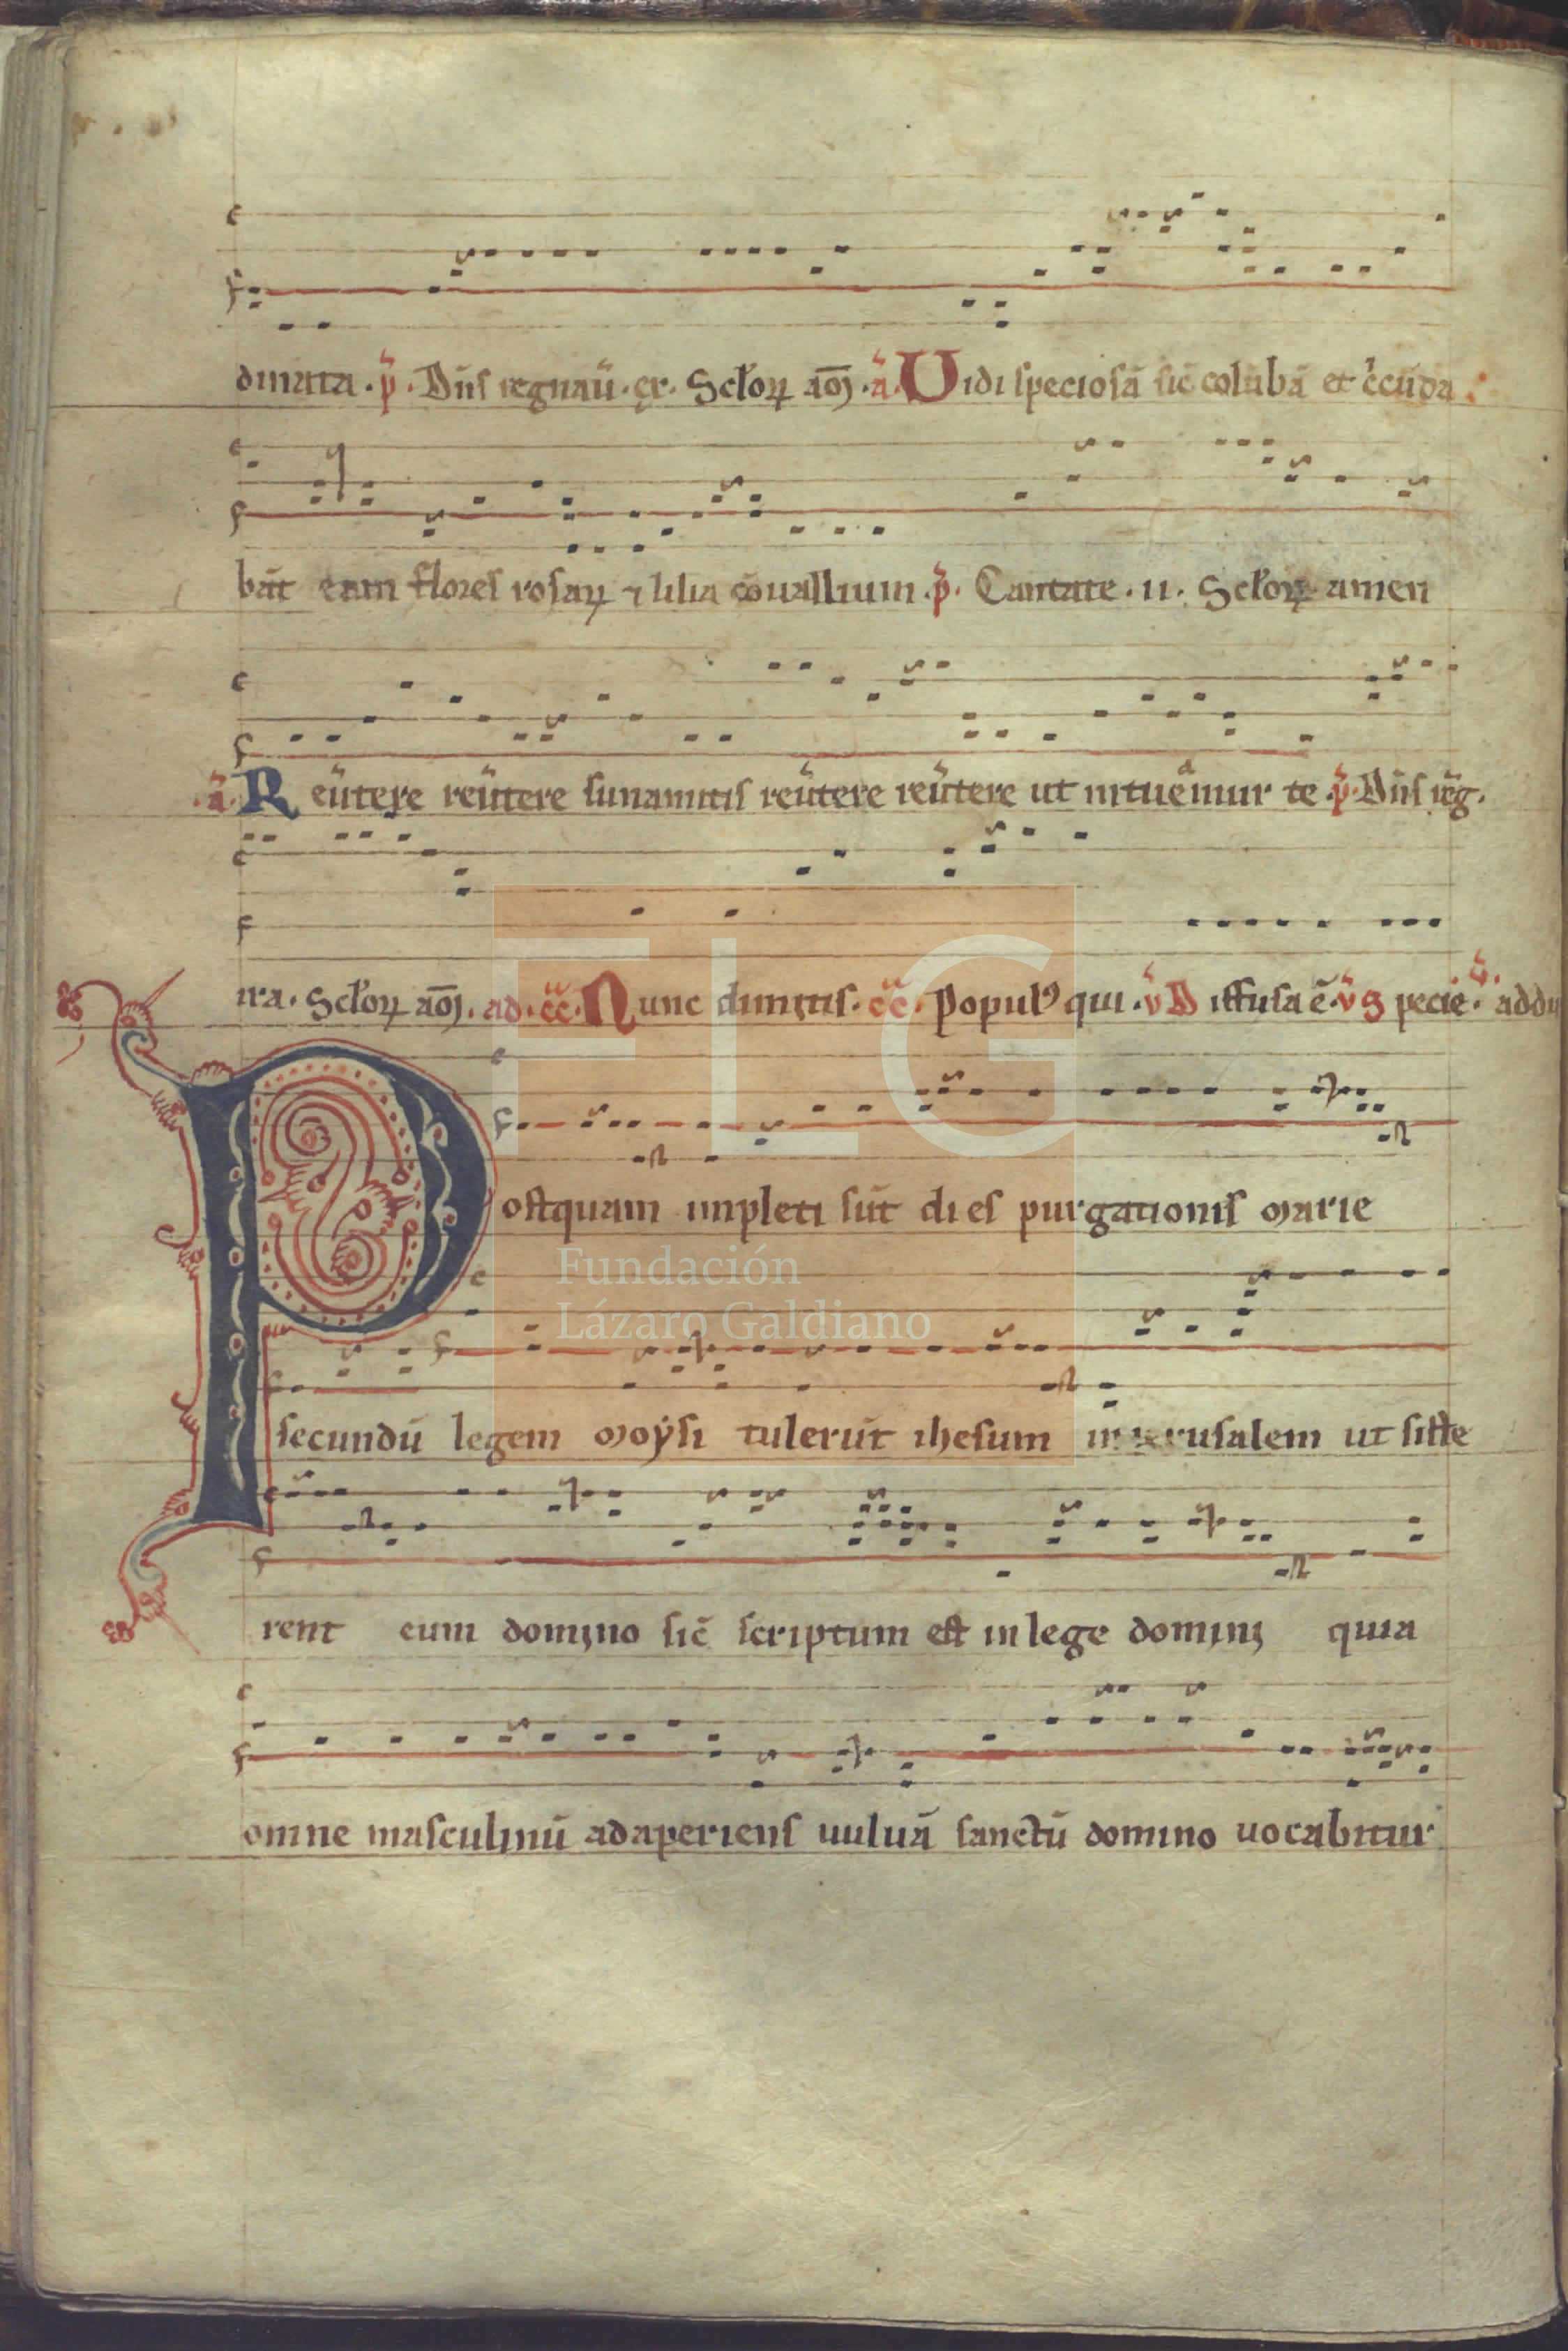 dinata · p̃ · Dn̄s regnaū · ex · Sctoꝝ am̄ · ã · Uidi speciosā sic̄ colūbā et c̄cūda
bāt eam flores rosaꝝ ⁊ lilia cōuallium · p̃ · Cantate · ii · Sctoꝝ amen
ã · Reūtere reūtere sunamitis reūtere reūtere ut intueamur te · p̃ · Dn̄s reg̃ ·
ira · Sctoꝝ am̄ · ad · cc̃ · Nunc dimittis · cc̃ · Populꝰ qui · v̄ Diffusa ē · v̄ Specie · v̄ · addu
Postquam impleti sūt dies purgationis marie
secundū legem moẏsi tulerūt ihesum in ierusalem ut siste
rent eum domino sic̄ scriptum est in lege domini quia
omne masculinū adaperiens uuluā sanctū domino uocabitur
FLG
Fundación
Lázaro Galdiano